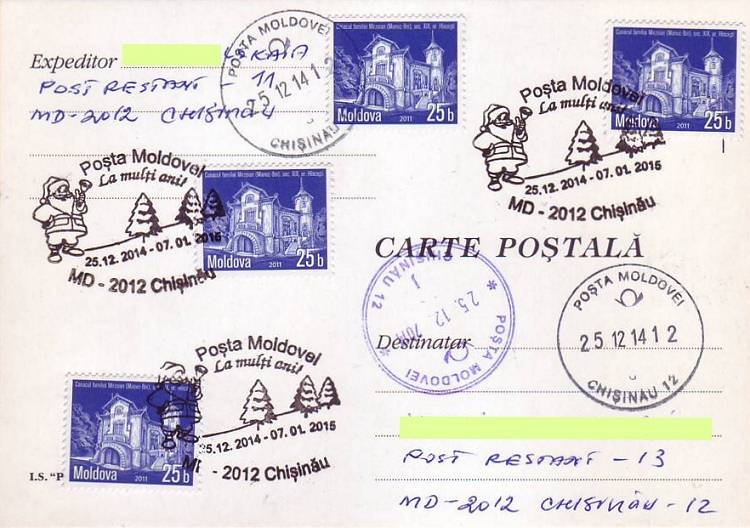 Expeditor
POST RESTANT - 11
MD-2012 CHIȘINĂU
POȘTA MOLDOVEI
25 12 14 1 2
CHIȘINĂU
Conacul familiei Mirzoian (Manuc-Bei), sec. XIX, or. Hîncești
Moldova
2011
25b
Poșta Moldovei
La mulți ani!
25.12.2014 - 07.01.2015
MD - 2012 Chișinău
Conacul familiei Mirzoian (Manuc-Bei), sec. XIX, or. Hîncești
Moldova
2011
25b
Poșta Moldovei
La mulți ani!
25.12.2014 - 07.01.2015
MD - 2012 Chișinău
Conacul familiei Mirzoian (Manuc-Bei), sec. XIX, or. Hîncești
Moldova
2011
25b
CARTE POȘTALĂ
CHIȘINĂU 12
25.12
POȘTA MOLDOVEI
Destinatar
POȘTA MOLDOVEI
25 12 14 1 2
CHIȘINĂU 12
Poșta Moldovei
La mulți ani!
25.12.2014 - 07.01.2015
MD - 2012 Chișinău
Moldova
2011
25b
I.S. "P
POST RESTANT - 13
MD-2012 CHIȘINĂU-12